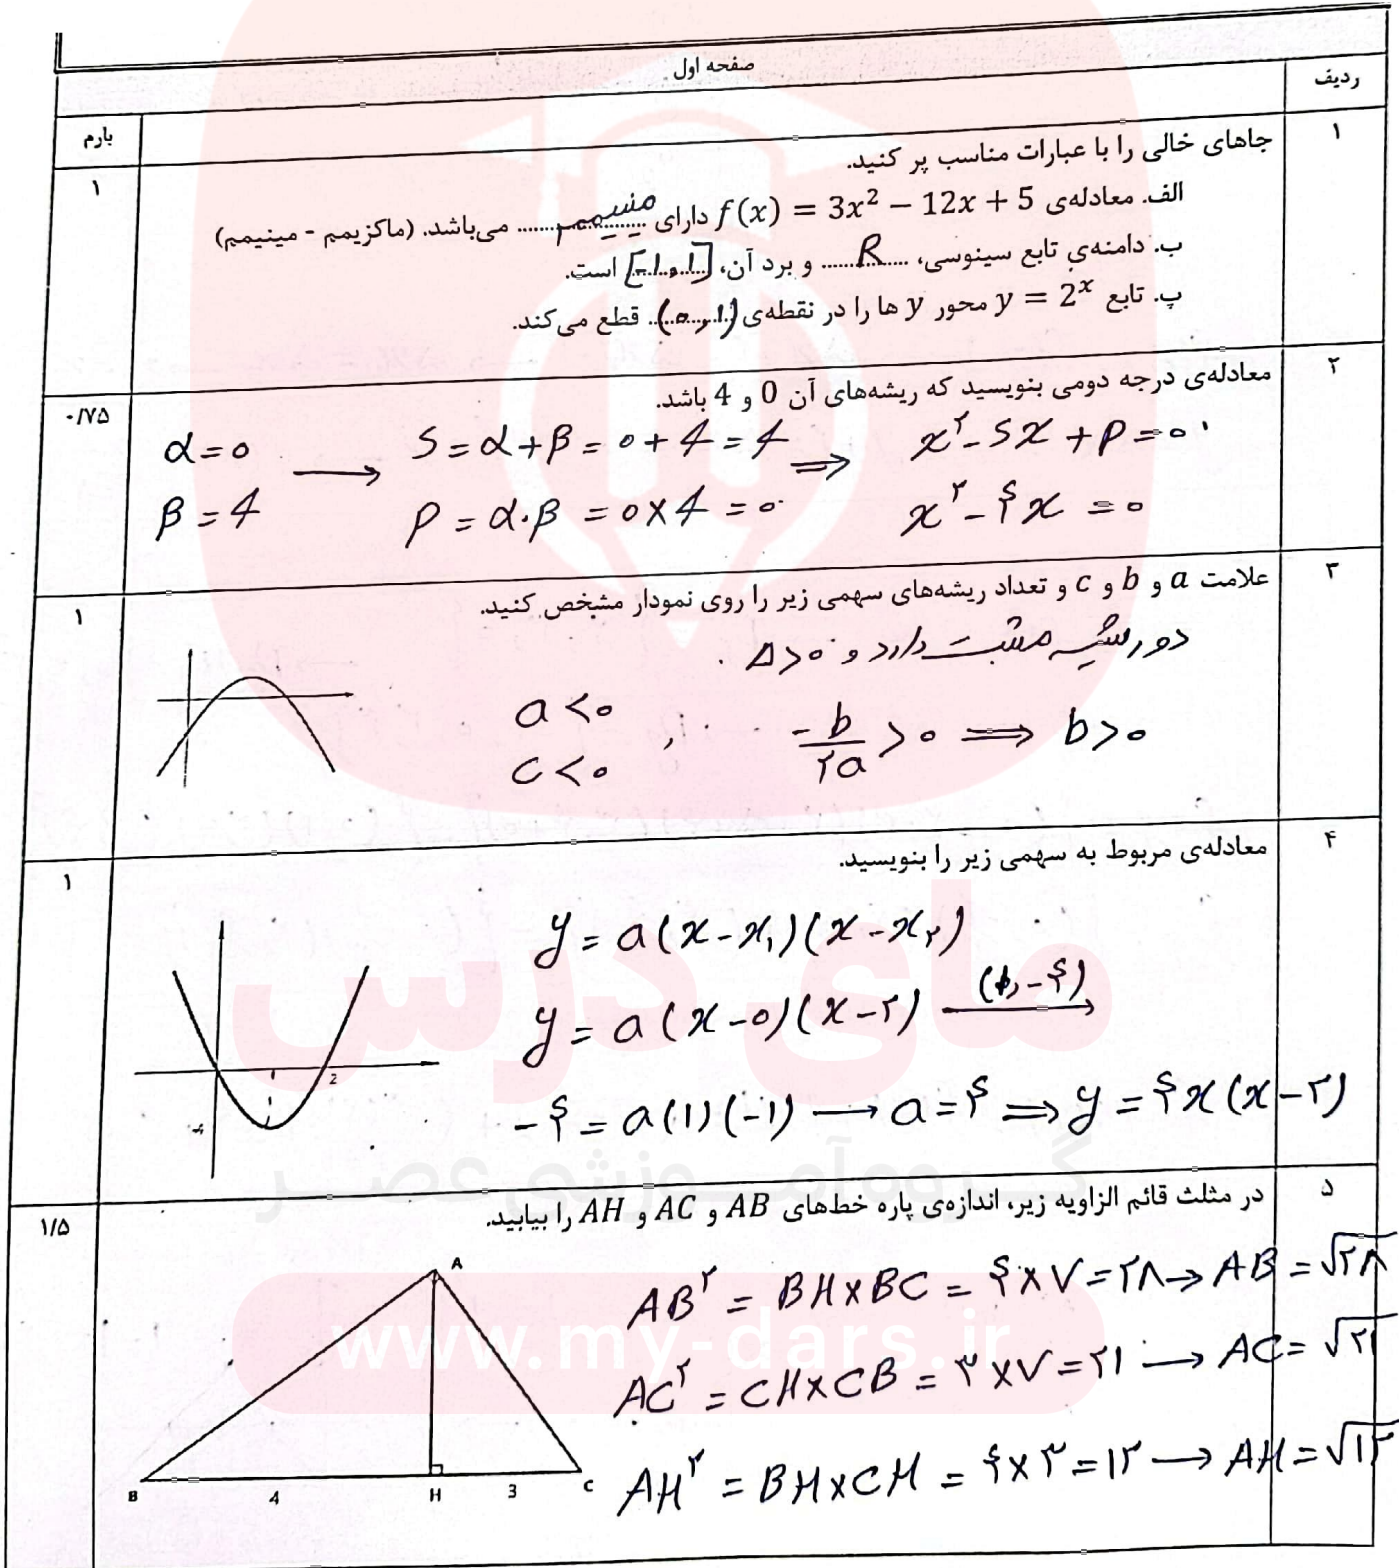 صفحه اول
ردیف
بارم
۱
جاهای خالی را با عبارات مناسب پر کنید.
۱
الف. معادله‌ی f(x) = 3x² − 12x + 5 دارای ....مینیمم.... می‌باشد. (ماکزیمم - مینیمم)
ب. دامنه‌ی تابع سینوسی، ....R.... و برد آن، [-۱,۱] است.
پ. تابع y = 2ˣ محور y ها را در نقطه‌ی (۰,۱) قطع می‌کند.
۲
معادله‌ی درجه دومی بنویسید که ریشه‌های آن 0 و 4 باشد.
۰/۷۵
α=0 → S=α+β=0+4=4 ⇒ x²-Sx+P=0
β=4 P=α.β=0×4=0 x²-۴x=0
۳
علامت a و b و c و تعداد ریشه‌های سهمی زیر را روی نمودار مشخص کنید.
۱
دو ریشه مثبت دارد و Δ>0.
a<0 , -b/۲a >0 ⇒ b>0
c<0
۴
معادله‌ی مربوط به سهمی زیر را بنویسید.
۱
y=a(x-x₁)(x-x₂)
y=a(x-0)(x-۲) (۱,-۴) →
-۴=a(1)(-1) → a=۴ ⇒ y=۴x(x-۲)
1
2
-4
۵
در مثلث قائم الزاویه زیر، اندازه‌ی پاره خط‌های AB و AC و AH را بیابید.
۱/۵
AB²=BH×BC=۴×۷=۲۸→AB=√۲۸
AC²=CH×CB=۳×۷=۲۱→AC=√۲۱
AH²=BH×CH=۴×۳=۱۲→AH=√۱۲
A
B
4
H
3
C
مای درس
گروه آموزشی عصر
www.my-dars.ir